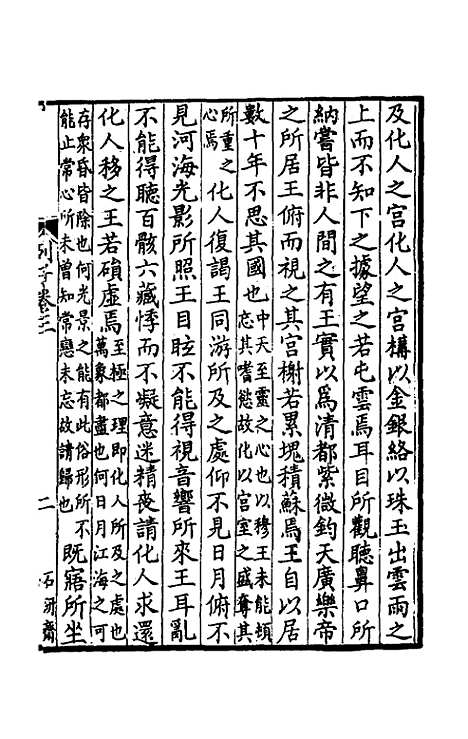 及化人之宫化人之宫構以金銀絡以珠玉出雲雨之
上而不知下之據望之若屯雲焉耳目所觀聽鼻口所
納嘗皆非人間之有王實以爲清都紫微鈞天廣樂帝
之所居王俯而視之其宫榭若累塊積蘇焉王自以居
數十年不思其國也中天至靈之心也以穆王未能頓
忘其嗜慾故化以宫室之盛奪其
所重之
心焉化人復謁王同游所及之處仰不見日月俯不
見河海光影所照王目眩不能得視音響所來王耳亂
不能得聽百骸六藏悸而不凝意迷精夜請化人求還
化人移之王若磒虛焉至極之理即化人所及之處也
萬象都盡也何日月江海之可
存衆昏皆除也何光景之能有此俗形所不
能止常心所未曾知常戀未忘故請歸也既寤所坐
列子卷三
二
石研齋